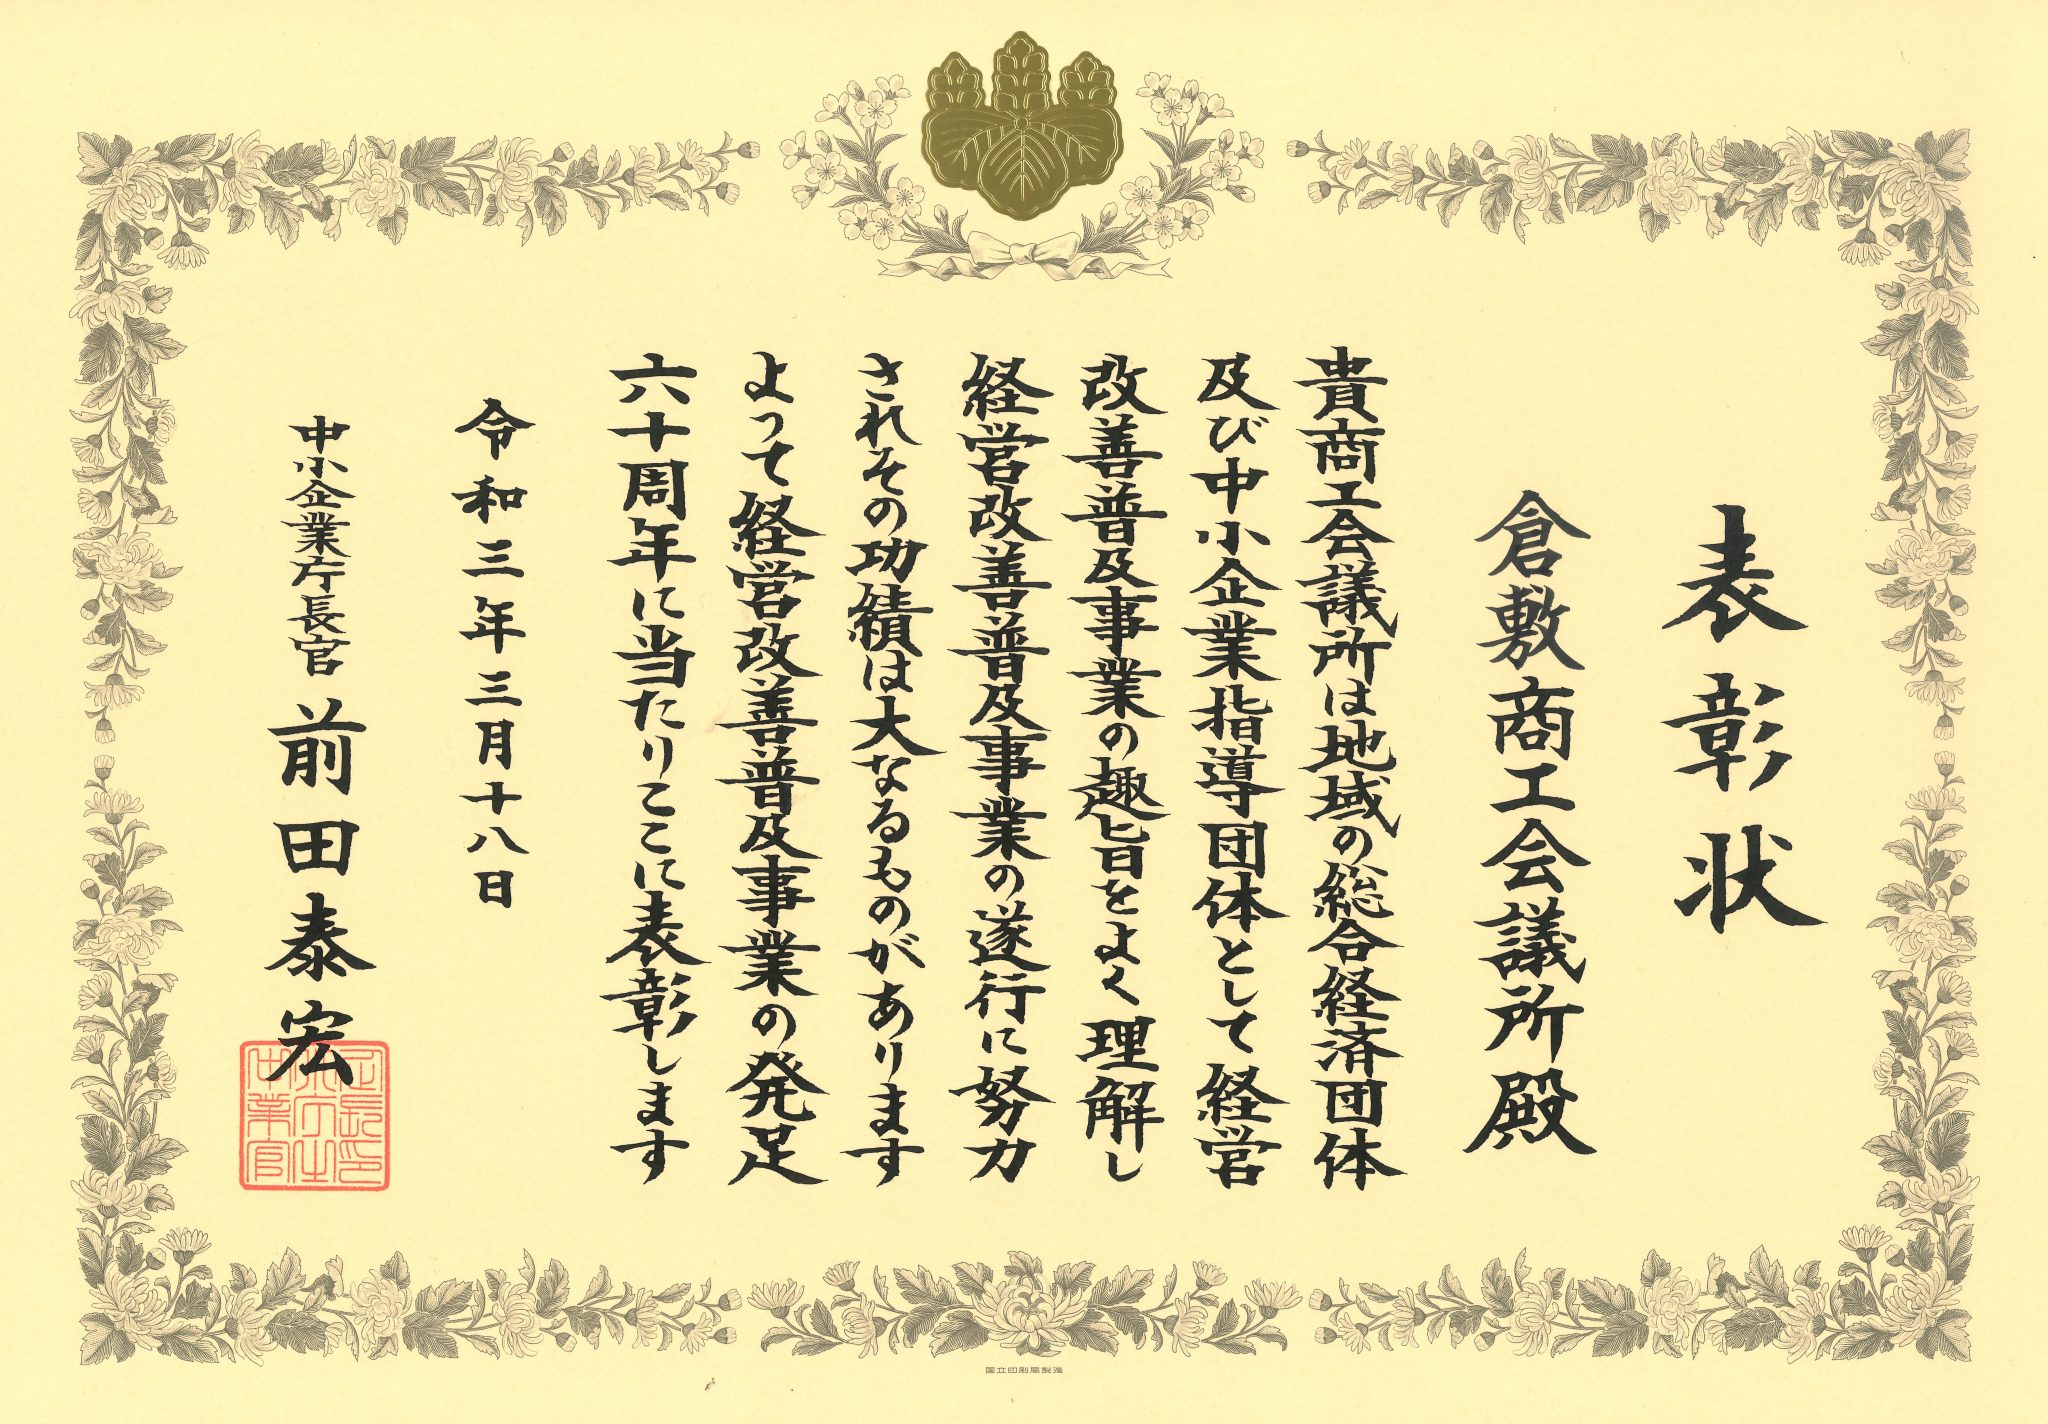 表彰状
倉敷商工会議所殿
貴商工会議所は地域の総合経済団体
及び中小企業指導団体として経営
改善普及事業の趣旨をよく理解し
経営改善普及事業の遂行に努力
されその功績は大なるものがあります
よって経営改善普及事業の発足
六十周年に当たりここに表彰します
令和三年三月十八日
中小企業庁長官 前田泰宏
国立印刷局製造